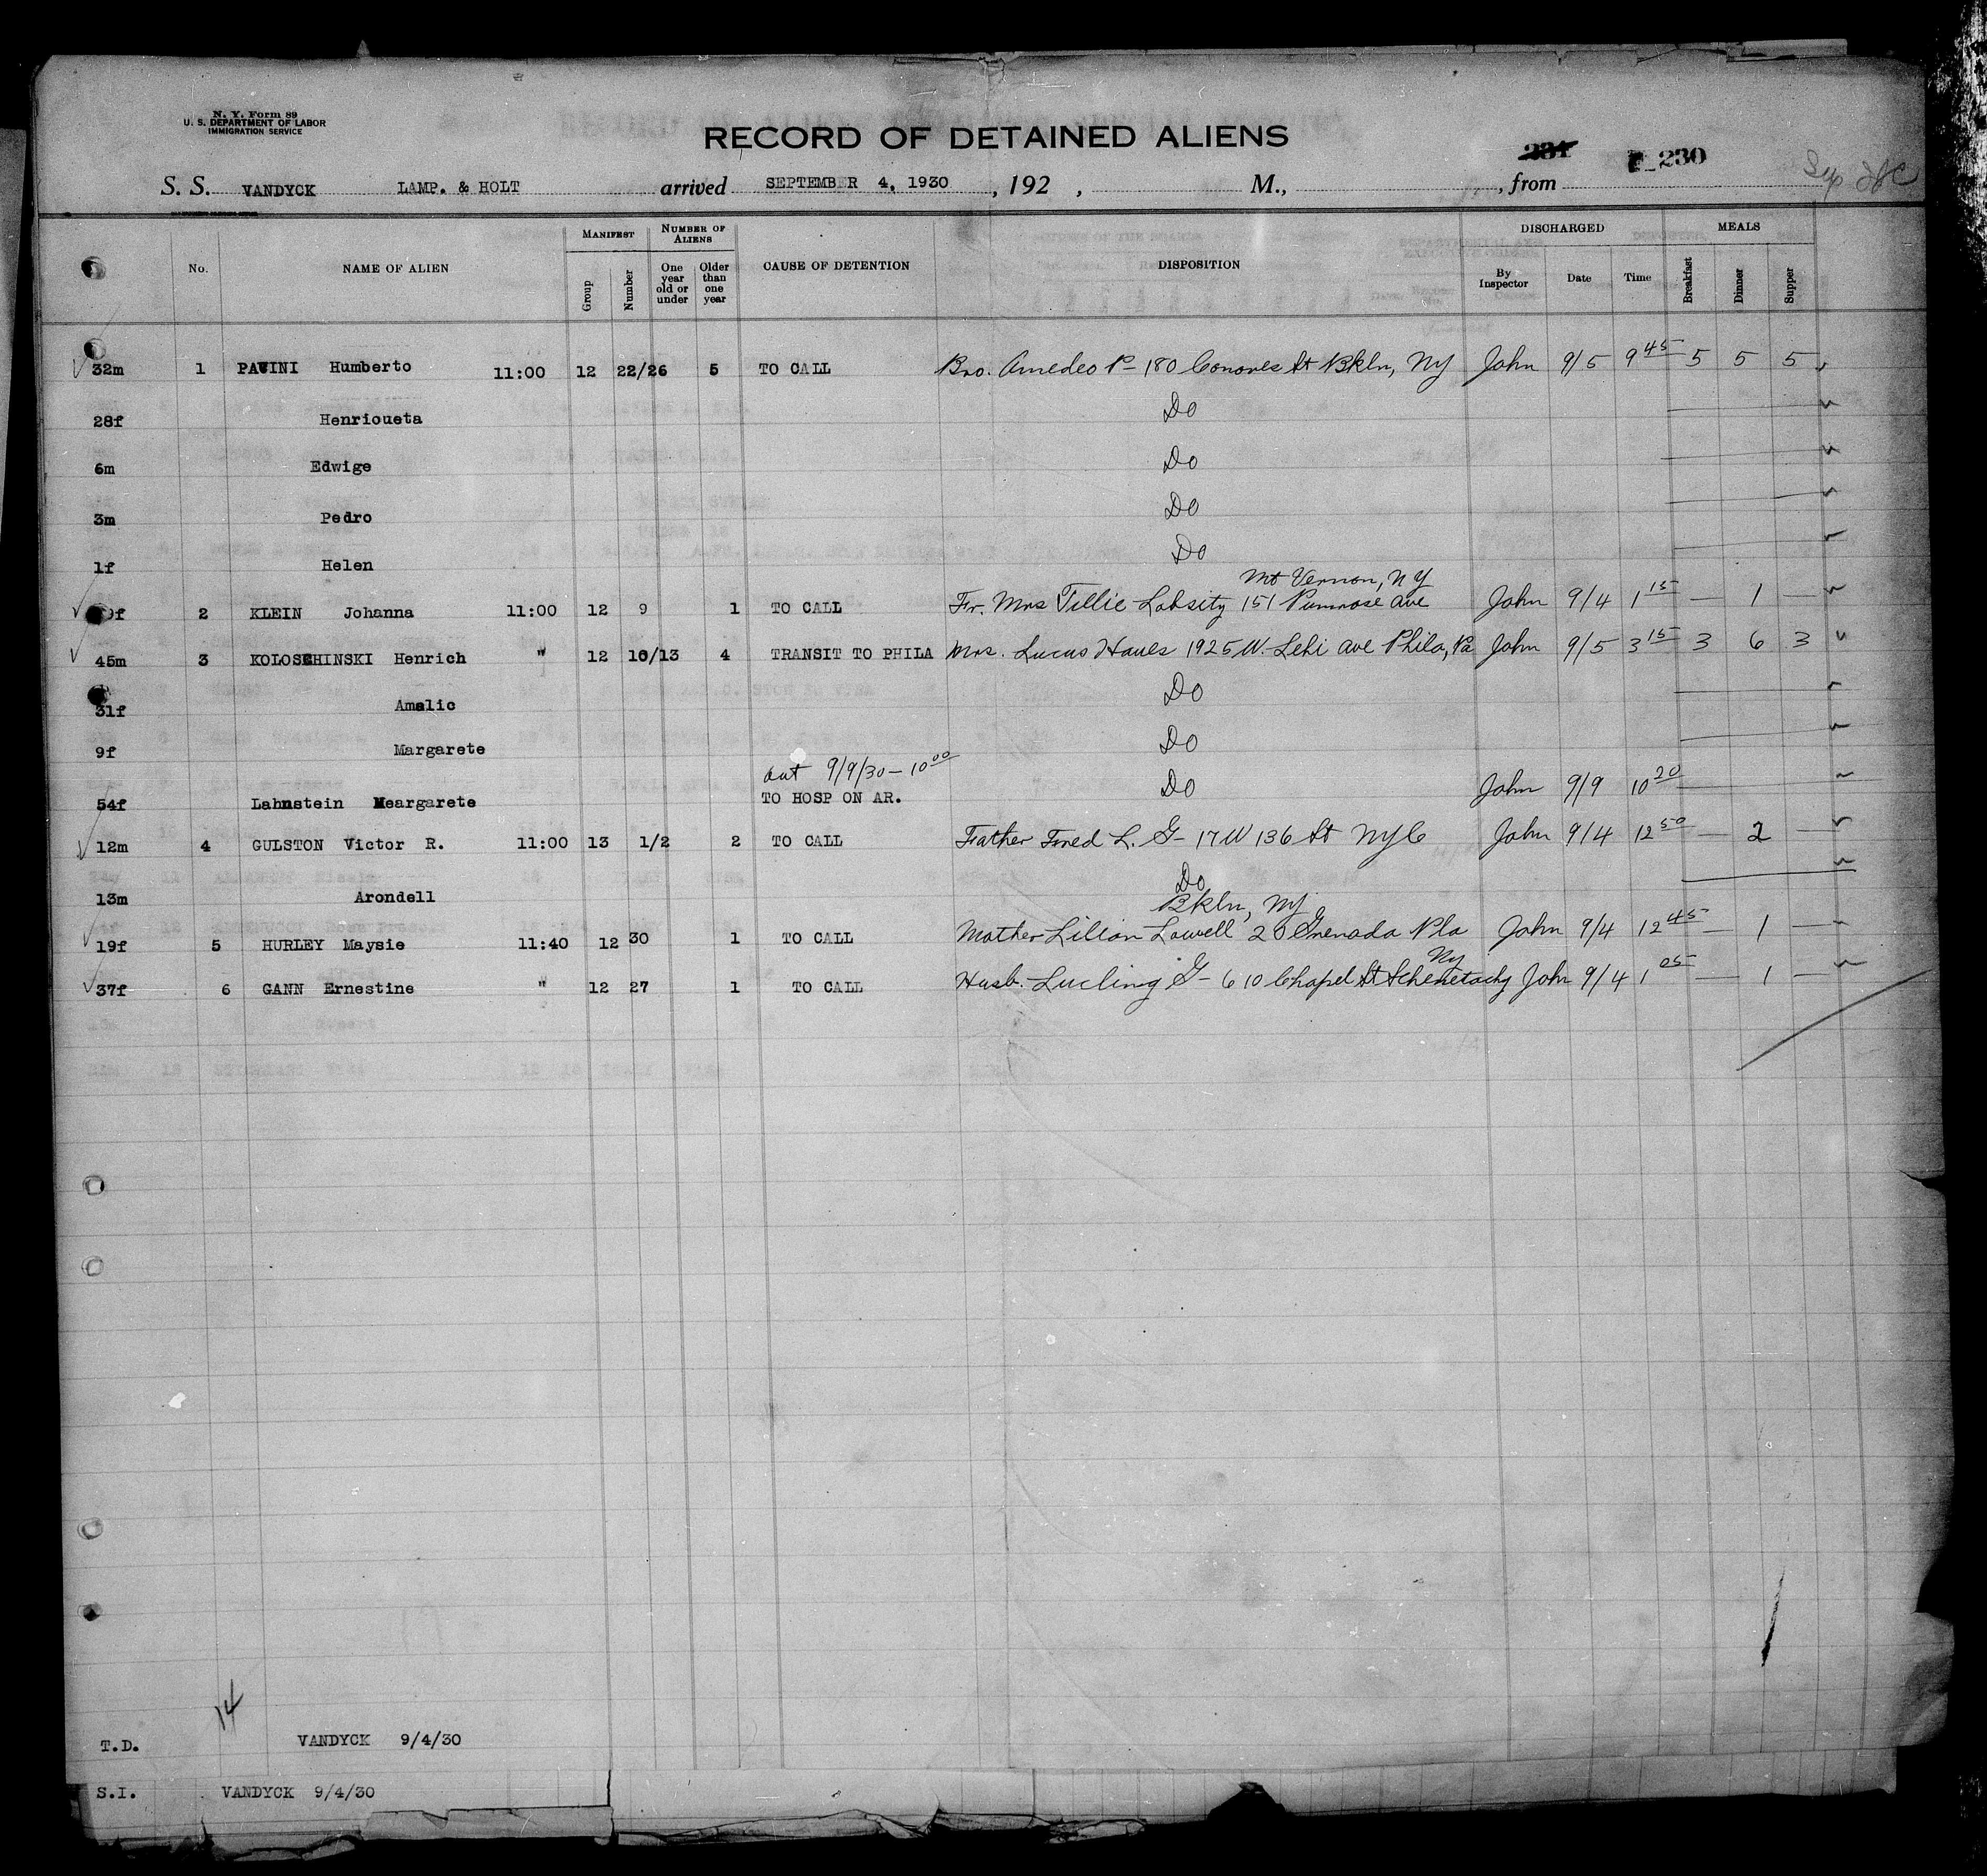 N. Y. Form 89
U. S. DEPARTMENT OF LABOR
IMMIGRATION SERVICE
RECORD OF DETAINED ALIENS
231 230
S. S. VANDYCK LAMP. & HOLT arrived SEPTEMBER 4, 1930, 192 , M., , from
No. NAME OF ALIEN MANIFEST Group Number NUMBER OF ALIENS One year old or under Older than one year CAUSE OF DETENTION DISPOSITION DISCHARGED By Inspector Date Time MEALS Breakfast Dinner Supper
32m 1 PAVINI Humberto 11:00 12 22/26 5 TO CALL Bro. Amedeo P- 180 Conoves St Bkln, NY John 9/5 9 45 5 5 5
28f Henrioueta Do
6m Edwige Do
3m Pedro Do
1f Helen Do
Mt Vernon, NY
9f 2 KLEIN Johanna 11:00 12 9 1 TO CALL Fr. Mrs Tillie 151 Ave John 9/4 1 15 — 1 —
45m 3 KOLOSCHINSKI Henrich " 12 10/13 4 TRANSIT TO PHILA Mrs. Lucas 1925 W. Ave Phila, Pa John 9/5 3 15 3 6 3
31f Amalic Do
9f Margarete Do
out 9/9/30 - 10 00
54f Lahnstein Meargarete TO HOSP ON AR. Do John 9/9 10 20
12m 4 GULSTON Victor R. 11:00 13 1/2 2 TO CALL Father Fred L. G- 17 W 136 St NYC John 9/4 12 50 — 2 —
13m Arondell Do
Bkln, NY
19f 5 HURLEY Maysie 11:40 12 30 1 TO CALL Mother Lilian Lowell 20 Grenada Pla John 9/4 12 45 — 1 —
NY
37f 6 GANN Ernestine " 12 27 1 TO CALL Husb. G- 610 Chapel St Schenetady John 9/4 1 05 — 1 —
14
T.D. VANDYCK 9/4/30
S.I. VANDYCK 9/4/30